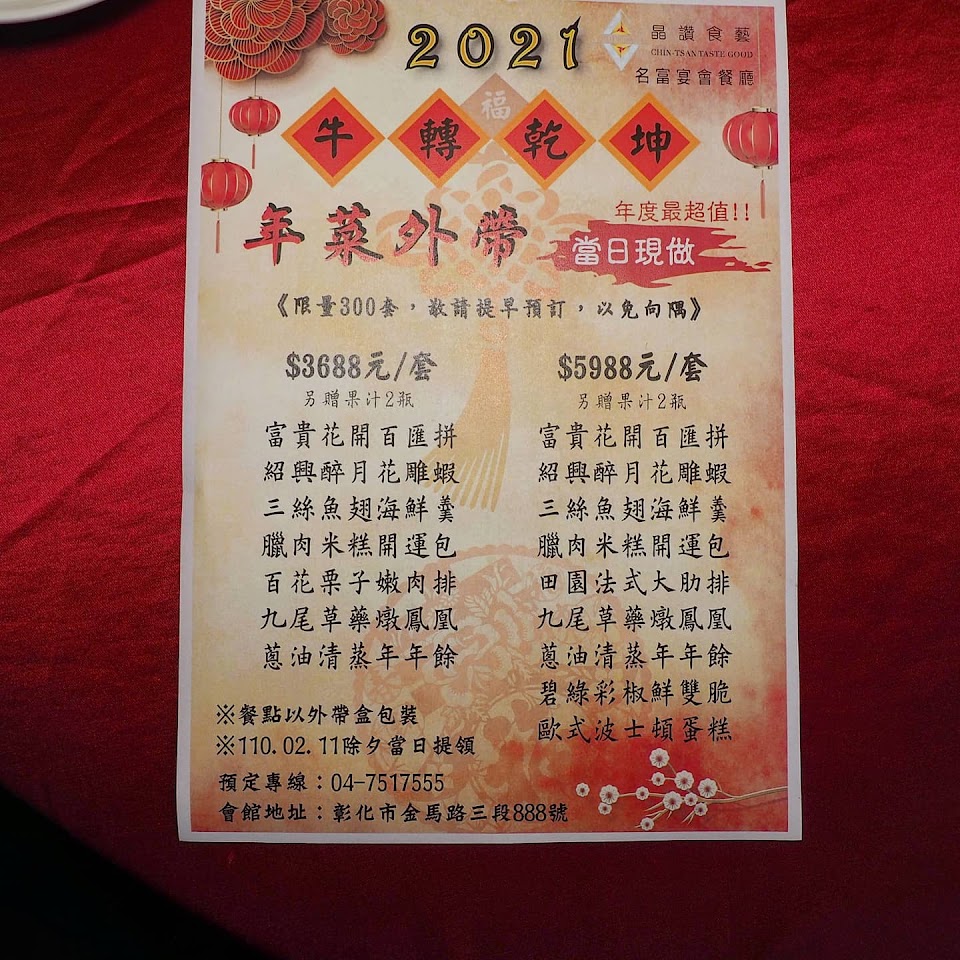 2021
晶讚食藝
CHIN-TSAN TASTE GOOD
名富宴會餐廳
福
牛轉乾坤
年菜外帶
年度最超值!!
當日現做
《限量300套，敬請提早預訂，以免向隅》
$3688元/套
另贈果汁2瓶
富貴花開百匯拼
紹興醉月花雕蝦
三絲魚翅海鮮羹
臘肉米糕開運包
百花栗子嫩肉排
九尾草藥燉鳳凰
蔥油清蒸年年餘
$5988元/套
另贈果汁2瓶
富貴花開百匯拼
紹興醉月花雕蝦
三絲魚翅海鮮羹
臘肉米糕開運包
田園法式大肋排
九尾草藥燉鳳凰
蔥油清蒸年年餘
碧綠彩椒鮮雙脆
歐式波士頓蛋糕
※餐點以外帶盒包裝
※110.02.11除夕當日提領
預定專線：04-7517555
會館地址：彰化市金馬路三段888號